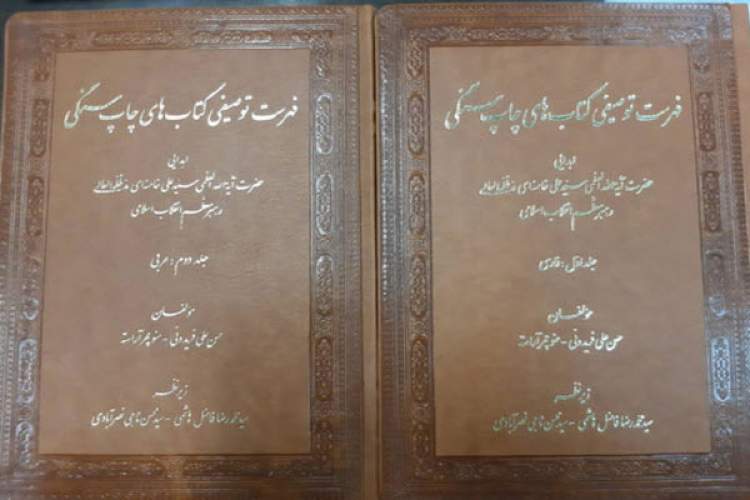 فهرست توصیفی کتاب های چاپ سنگی
اهدایی
حضرت آیةالله العظمی سید علی خامنه‌ای مدظله‌العالی
رهبر معظم انقلاب اسلامی
جلد اول: فارسی
مؤلفان
حسن علی فریدونی - منوچهر آراسته
زیر نظر
سید محمدرضا فاضل هاشمی - سید محسن ناجی نصرآبادی
فهرست توصیفی کتاب های چاپ سنگی
اهدایی
حضرت آیةالله العظمی سید علی خامنه‌ای مدظله‌العالی
رهبر معظم انقلاب اسلامی
جلد دوم: عربی
مؤلفان
حسن علی فریدونی - منوچهر آراسته
زیر نظر
سید محمدرضا فاضل هاشمی - سید محسن ناجی نصرآبادی